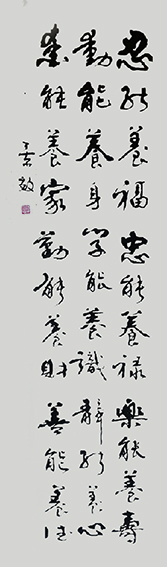 忍能養福忠能養祿樂能養壽
動能養身學能養識靜能養心
素能養家勤能養財善能養性